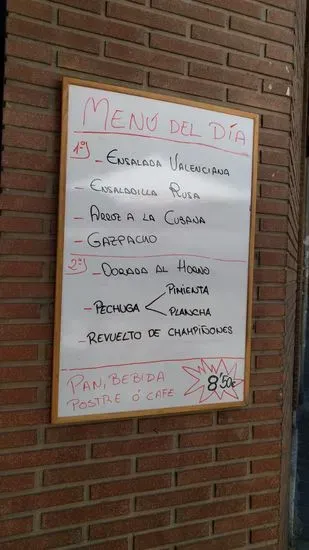 MENÚ DEL DÍA
1º) - ENSALADA VALENCIANA
- ENSALADILLA RUSA
- ARROZ A LA CUBANA
- GAZPACHO
2º) - DORADA AL HORNO
- PECHUGA < PIMIENTA
PLANCHA
- REVUELTO DE CHAMPIÑONES
PAN, BEBIDA
POSTRE Ó CAFE
8'50€